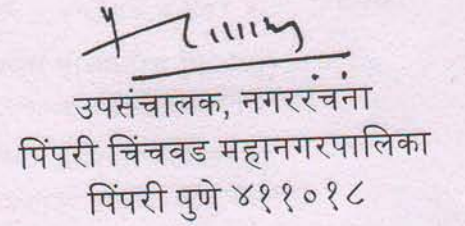 उपसंचालक, नगररचंना
पिंपरी चिंचवड महानगरपालिका
पिंपरी पुणे ४११०१८